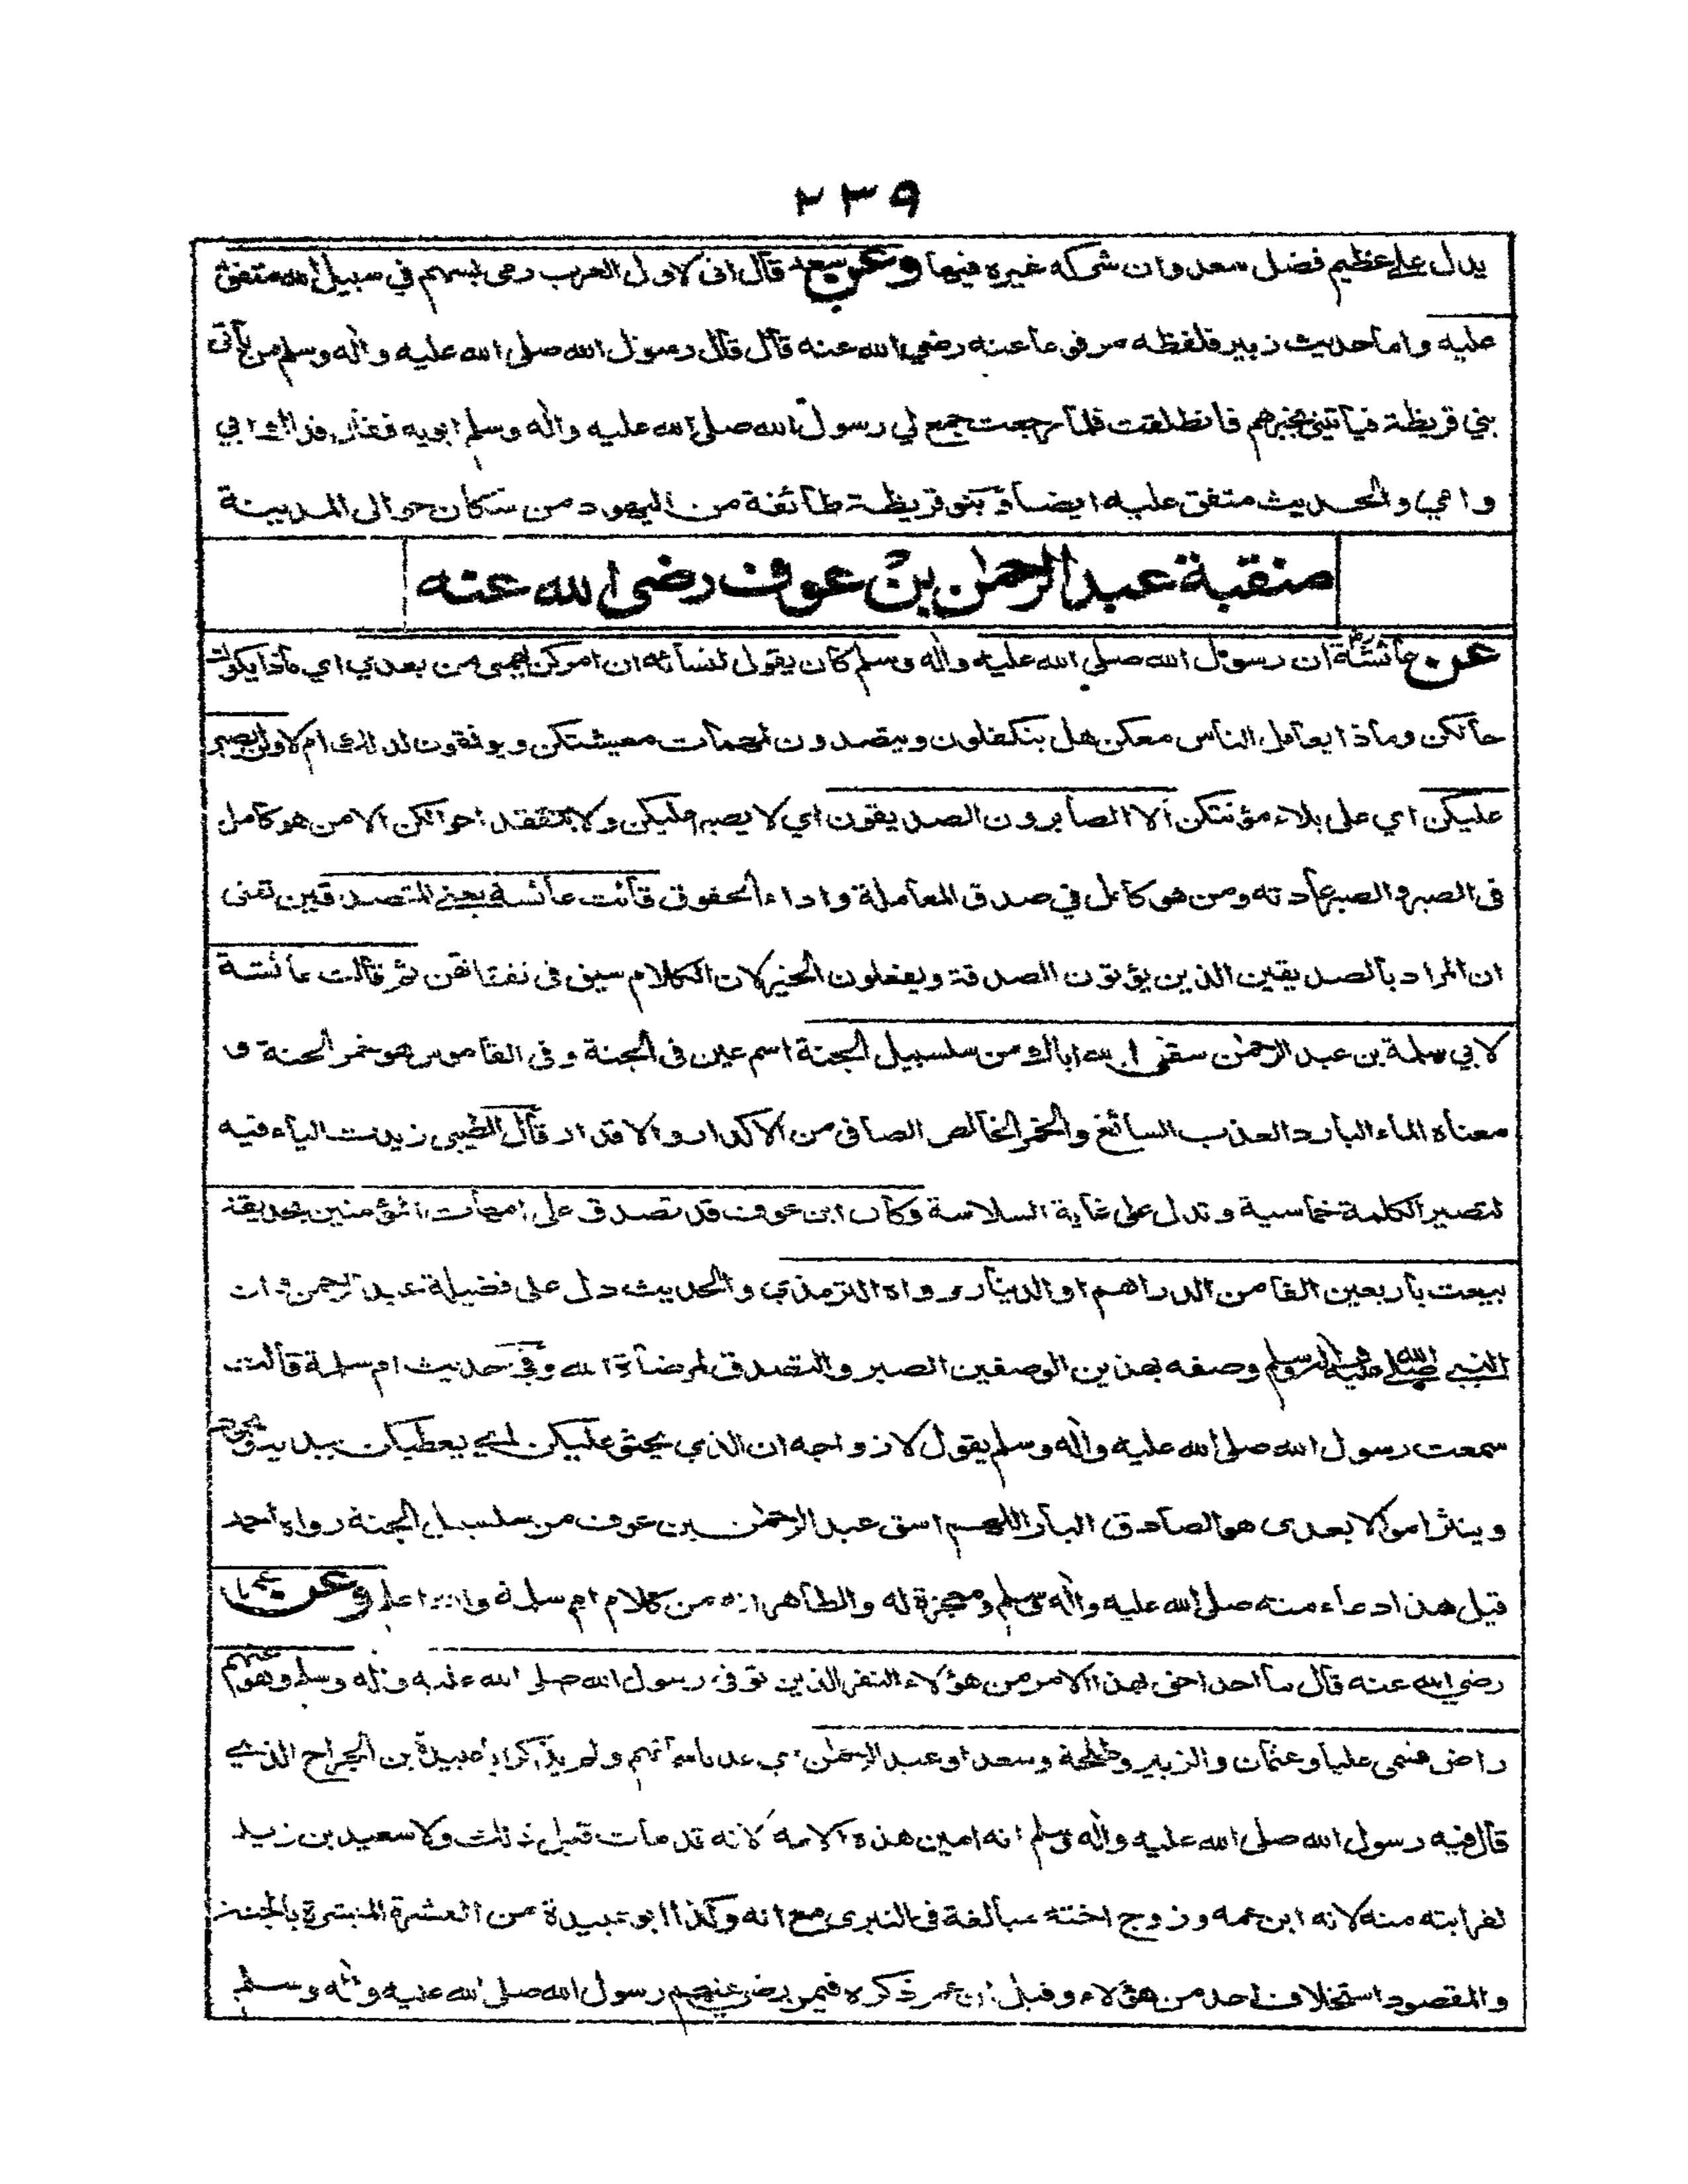 ٢٣٩
يدل على عظيم فضل سعد وان شركه غيره فيها وعن سعد قال انى لاول العرب رمى بسهم في سبيل الله متفق
عليه واما حديث زبير فلفظه مرفوعا عنه رضي الله عنه قال قال رسول الله صلى الله عليه واٰله وسلم من يأتى
بني قريظة فيأتينى بخبرهم فانطلقت فلما رجعت جمع لي رسول الله صلى الله عليه واٰله وسلم ابويه فقال فداك ابي
وامي والحديث متفق عليه ايضا وبنو قريظة طائفة من اليهود من سكان حوالى المدينة
منقبة عبد الرحمٰن بن عوف رضى الله عنه
عن عائشة ان رسول الله صلى الله عليه واٰله وسلم كان يقول لنسائه ان امركن يهمنى من بعدي اي ماذا يكون
حالكن وماذا يعامل الناس معكن هل يتكفلون ويقصدون لمهمات معيشتكن ويوفقون لذلك ام لا ولن يصبر
عليكن اي على بلاء مؤنتكن الا الصابرون الصديقون اي لا يصبر عليكن ولا يتفقد احوالكن الا من هو كامل
فى الصبر والصبر عادته ومن هو كامل في صدق المعاملة واداء الحقوق قالت عائشة يعنى المتصدقين تعنى
ان المراد بالصديقين الذين يؤتون الصدقة ويفعلون الخير لان الكلام سيق فى نفقاتهن ثم قالت عائشة
لابي سلمة بن عبد الرحمٰن سقى الله اباك من سلسبيل الجنة اسم عين فى الجنة وفى القاموس هو خمر الجنة و
معناه الماء البارد العذب السائغ والخمر الخالص الصافى من الاكدار والاقدار قال الطيبى زيدت الياء فيه
لتصير الكلمة خماسية وتدل على غاية السلاسة وكان ابن عوف قد تصدق على امهات المؤمنين بحديقة
بيعت باربعين الفا من الدراهم او الدينار رواه الترمذي والحديث دل على فضيلة عبد الرحمن وان
النبي صلى الله عليه واٰله وسلم وصفه بهذين الوصفين الصبر والتصدق لمرضاة الله وفى حديث ام سلمة قالت
سمعت رسول الله صلى الله عليه واٰله وسلم يقول لازواجه ان الذي يحثو عليكن اي يعطيكن بيديه
وينثر اموالا بعدى هو الصادق البار اللهم اسق عبد الرحمٰن بن عوف من سلسبيل الجنة رواه احمد
قيل هذا دعاء منه صلى الله عليه واٰله وسلم ومعجزة له والظاهر انه من كلام ام سلمة والله اعلم وعن
رضي الله عنه قال ما احد احق بهذا الامر من هؤلاء النفر الذين توفى رسول الله صلى الله عليه واٰله وسلم وهو عنهم
راض فسمى عليا وعثمان والزبير وطلحة وسعدا وعبد الرحمٰن اي عدد اسمائهم ولم يذكر ابا عبيدة بن الجراح الذي
قال فيه رسول الله صلى الله عليه واٰله وسلم انه امين هذه الامة لانه قد مات قبل ذلك ولا سعيد بن زيد
لقرابته منه لانه ابن عمه وزوج اخته مبالغة فى التبرى مع انه وكذا ابو عبيدة من العشرة المبشرة بالجنة
والمقصود استخلاف احد من هؤلاء وقيل ان عمر ذكره فيمن رضى عنهم رسول الله صلى الله عليه واٰله وسلم